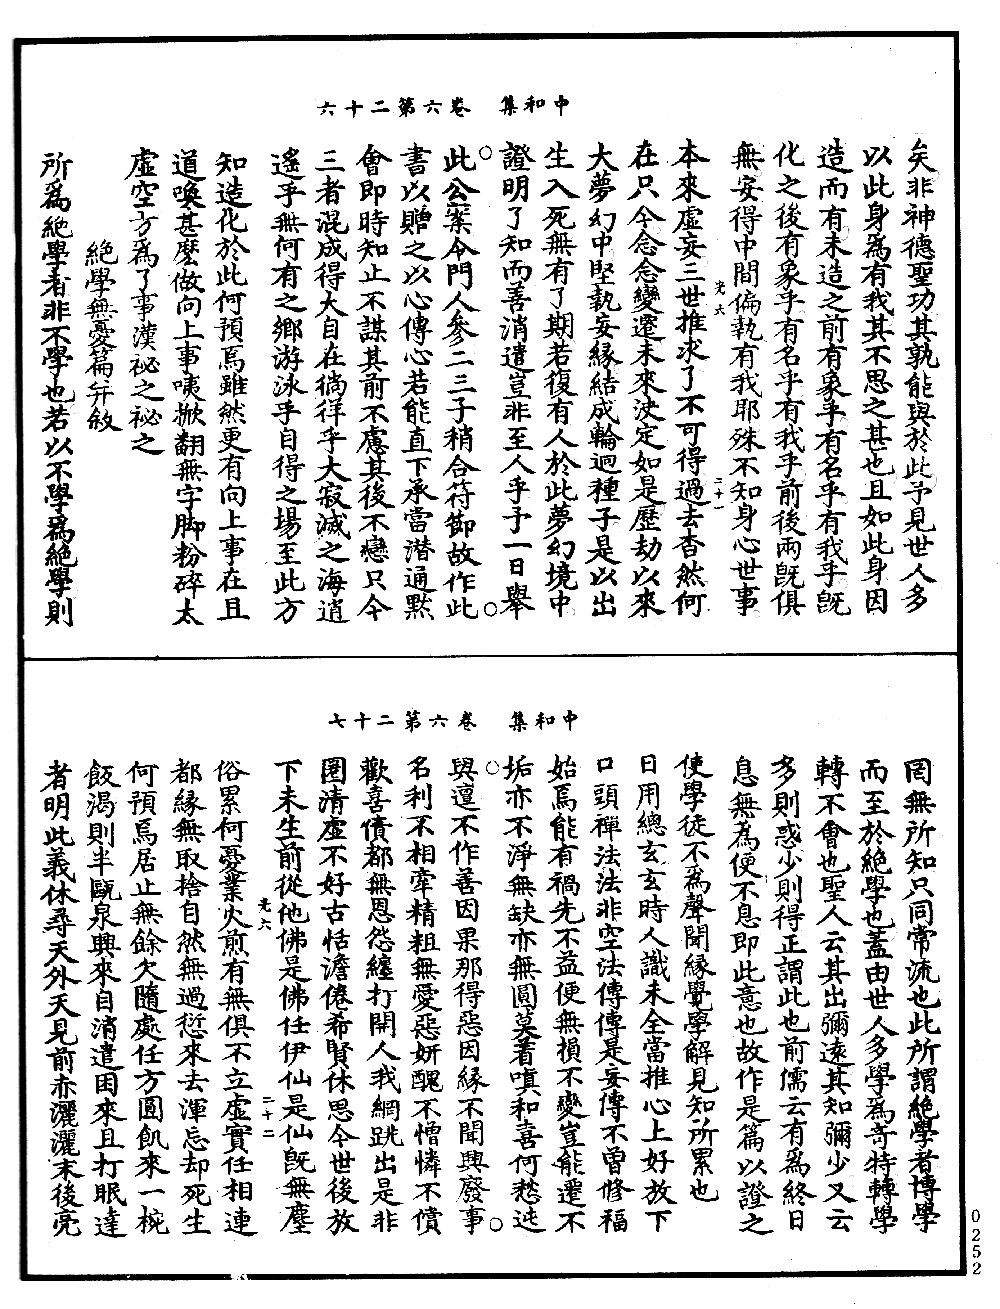 中和集　卷六第二十六
矣非神德聖功其孰能與於此予見世人多
以此身為有我其不思之甚也且如此身因
造而有未造之前有象乎有名乎有我乎旣
化之後有象乎有名乎有我乎前後兩旣俱
無安得中間偏執有我耶殊不知身心世事
光六　二十一
本來虛妄三世推求了不可得過去杳然何
在只今念念變遷未來決定如是歷劫以來
大夢幻中堅執妄緣結成輪迴種子是以出
生入死無有了期若復有人於此夢幻境中
證明了知而善消遣豈非至人乎予一日舉
此公案令門人參二三子稍合符節故作此
書以贈之以心傳心若能直下承當潛通默
會即時知止不謀其前不慮其後不戀只今
三者混成得大自在徜徉乎大寂滅之海逍
遙乎無何有之鄉游泳乎自得之場至此方
知造化於此何預焉雖然更有向上事在且
道喚甚麼做向上事咦掀翻無字脚粉碎太
虛空方為了事漢祕之祕之
絕學無憂篇并敘
所為絕學者非不學也若以不學為絕學則
中和集　卷六第二十七
罔無所知只同常流也此所謂絕學者博學
而至於絕學也蓋由世人多學為奇特轉學
轉不會也聖人云其出彌遠其知彌少又云
多則惑少則得正謂此也前儒云有為終日
息無為便不息即此意也故作是篇以證之
使學徒不為聲聞緣覺學解見知所累也
日用總玄玄時人識未全當推心上好放下
口頭禪法法非空法傳傳是妄傳不曾修福
始焉能有禍先不益便無損不變豈能遷不
垢亦不淨無缺亦無圓莫著嗔和喜何愁迍
與邅不作善因果那得惡因緣不聞興廢事
名利不相牽精粗無愛惡妍醜不憎憐不償
歡喜債都無恩怨纏打開人我網跳出是非
圈清虛不好古恬澹倦希賢休思今世後放
下未生前從他佛是佛任伊仙是仙旣無塵
光六　二十二
俗累何憂業火煎有無俱不立虛實任相連
都緣無取捨自然無過愆來去渾忘却死生
何預焉居止無餘欠隨處任方圓飢來一椀
飯渴則半甌泉興來自消遣困來且打眠達
者明此義休尋天外天見前赤灑灑末後亮
0252